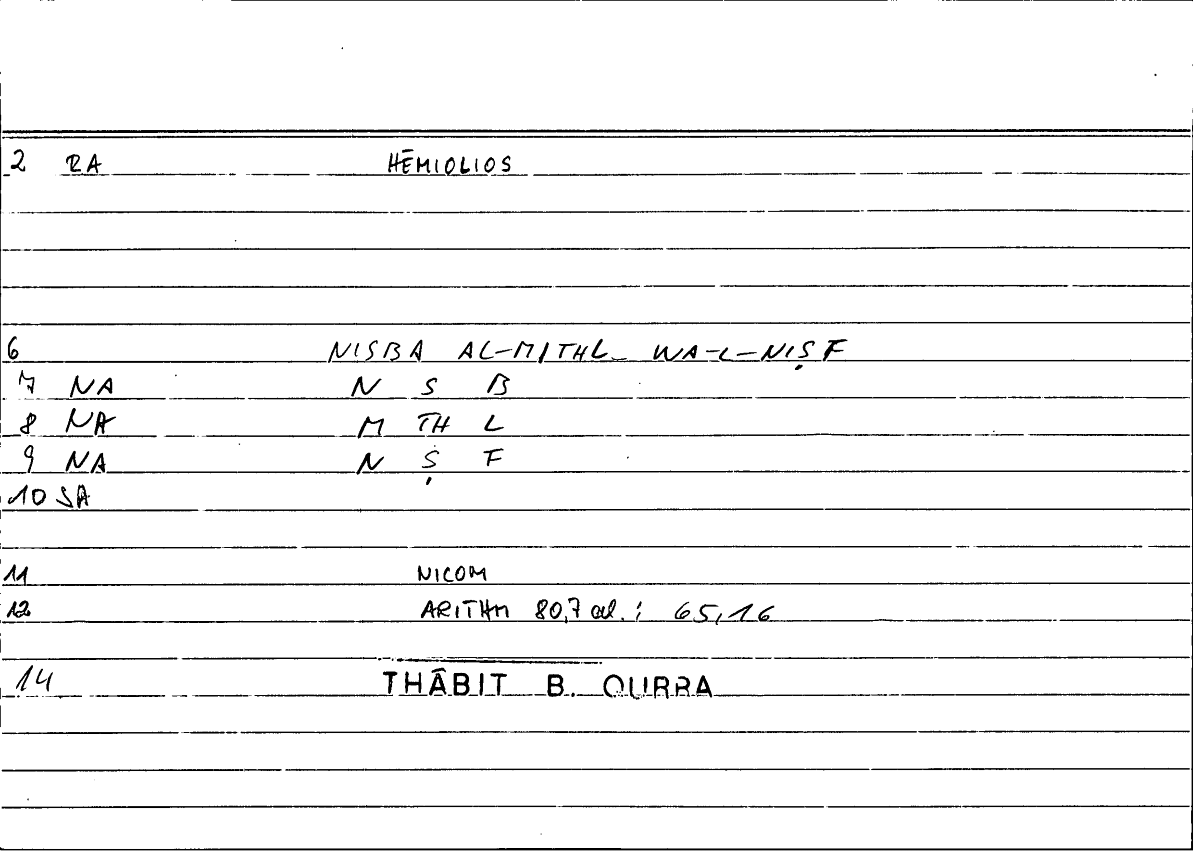 2 RA HĒMIOLIOS
6 NISBA AL-MITHL WA-L-NIṢF
7 NA N S B
8 NA M TH L
9 NA N Ṣ F
10 SA
11 NICOM
12 ARITHM 80,7 al.; 65,16
14 THĀBIT B. QURRA